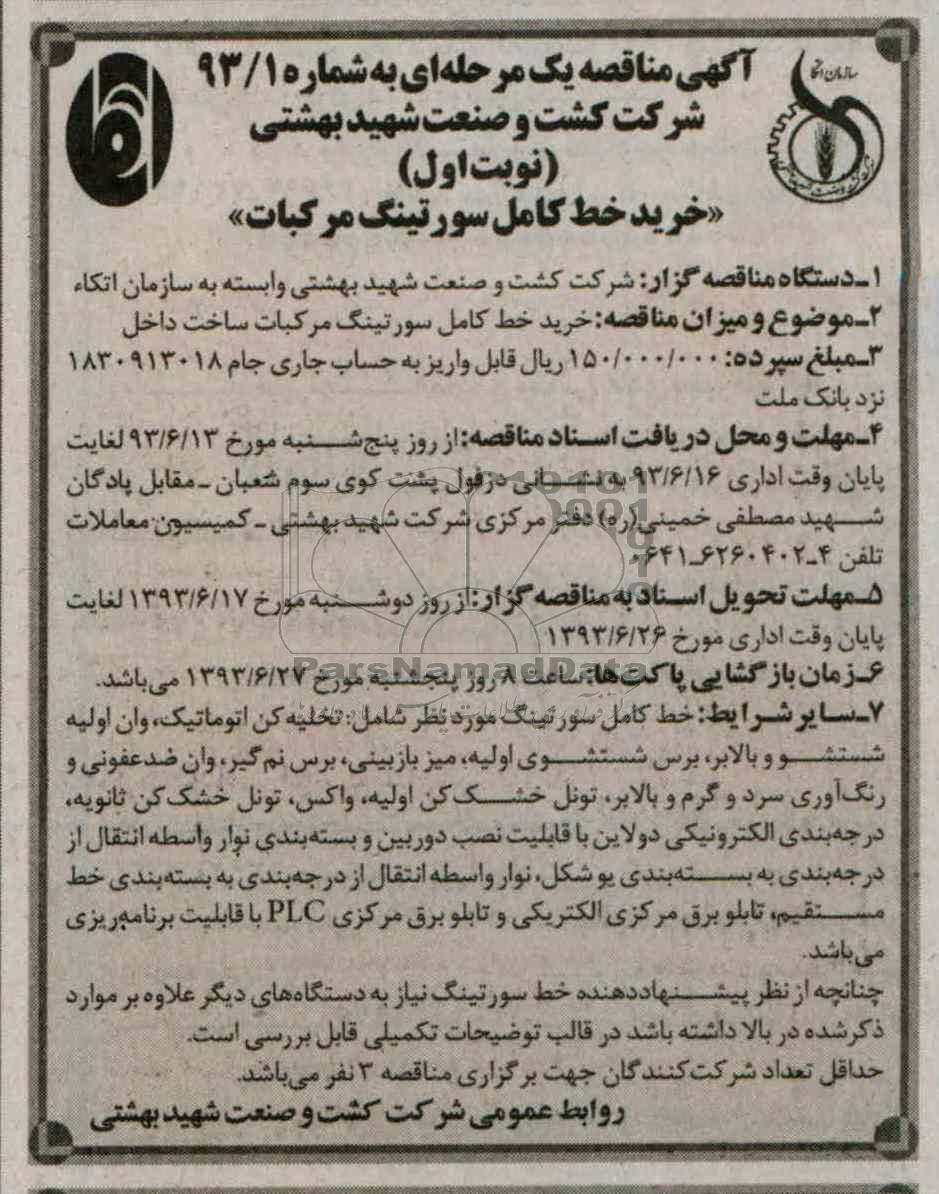 سازمان اتکا
آگهی مناقصه یک مرحله‌ای به شماره ۹۳/۱
شرکت کشت و صنعت شهید بهشتی
(نوبت اول)
«خرید خط کامل سورتینگ مرکبات»
۱ـ‌دستگاه مناقصه گزار: شرکت کشت و صنعت شهید بهشتی وابسته به سازمان اتکاء
۲ـ‌موضوع و میزان مناقصه: خرید خط کامل سورتینگ مرکبات ساخت داخل
۳ـ‌مبلغ سپرده: ۱۵۰/۰۰۰/۰۰۰ ریال قابل واریز به حساب جاری جام ۱۸۳۰۹۱۳۰۱۸
نزد بانک ملت
۴ـ‌مهلت و محل دریافت اسناد مناقصه: از روز پنج‌شنبه مورخ ۹۳/۶/۱۳ لغایت
پایان وقت اداری ۹۳/۶/۱۶ به نشانی دزفول پشت کوی سوم شعبان ـ مقابل پادگان
شهید مصطفی خمینی(ره) دفتر مرکزی شرکت شهید بهشتی ـ کمیسیون معاملات
تلفن ۴ـ۶۲۶۰۴۰۲ـ۰۶۴۱
۵ـ‌مهلت تحویل اسناد به مناقصه گزار: از روز دوشنبه مورخ ۱۳۹۳/۶/۱۷ لغایت
پایان وقت اداری مورخ ۱۳۹۳/۶/۲۶
۶ـ‌زمان بازگشایی پاکت‌ها: ساعت ۸ روز پنجشنبه مورخ ۱۳۹۳/۶/۲۷ می‌باشد.
ParsNamadData
۷ـ‌سایر شرایط: خط کامل سورتینگ مورد نظر شامل: تخلیه‌کن اتوماتیک، وان اولیه
شستشو و بالابر، برس شستشوی اولیه، میز بازبینی، برس نم گیر، وان ضدعفونی و
رنگ‌آوری سرد و گرم و بالابر، تونل خشک‌کن اولیه، واکس، تونل خشک‌کن ثانویه،
درجه‌بندی الکترونیکی دولاین با قابلیت نصب دوربین و بسته‌بندی نوار واسطه انتقال از
درجه‌بندی به بسته‌بندی یو شکل، نوار واسطه انتقال از درجه‌بندی به بسته‌بندی خط
مستقیم، تابلو برق مرکزی الکتریکی و تابلو برق مرکزی PLC با قابلیت برنامه‌ریزی
می‌باشد.
چنانچه از نظر پیشنهاددهنده خط سورتینگ نیاز به دستگاه‌های دیگر علاوه بر موارد
ذکرشده در بالا داشته باشد در قالب توضیحات تکمیلی قابل بررسی است.
حداقل تعداد شرکت‌کنندگان جهت برگزاری مناقصه ۳ نفر می‌باشد.
روابط عمومی شرکت کشت و صنعت شهید بهشتی